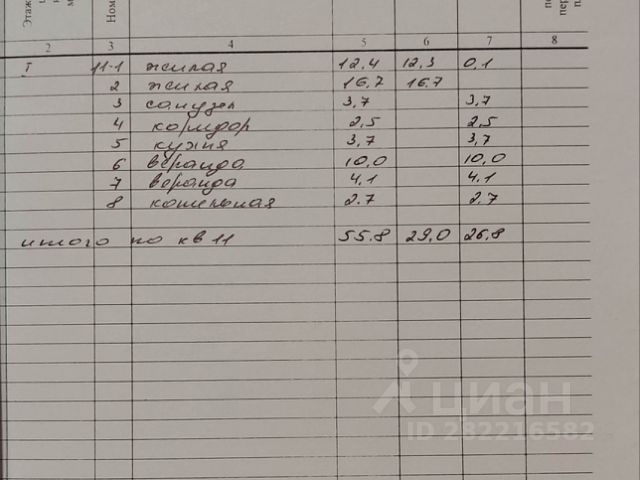 Этаж
Ном
2 3 4 5 6 7 8
I 11-1 жилая 12,4 12,3 0,1
2 жилая 16,7 16,7
3 санузел 3,7 3,7
4 коридор 2,5 2,5
5 кухня 3,7 3,7
6 веранда 10,0 10,0
7 веранда 4,1 4,1
8 котельная 2,7 2,7
итого по кв 11 55,8 29,0 26,8
циан
ID 282216582